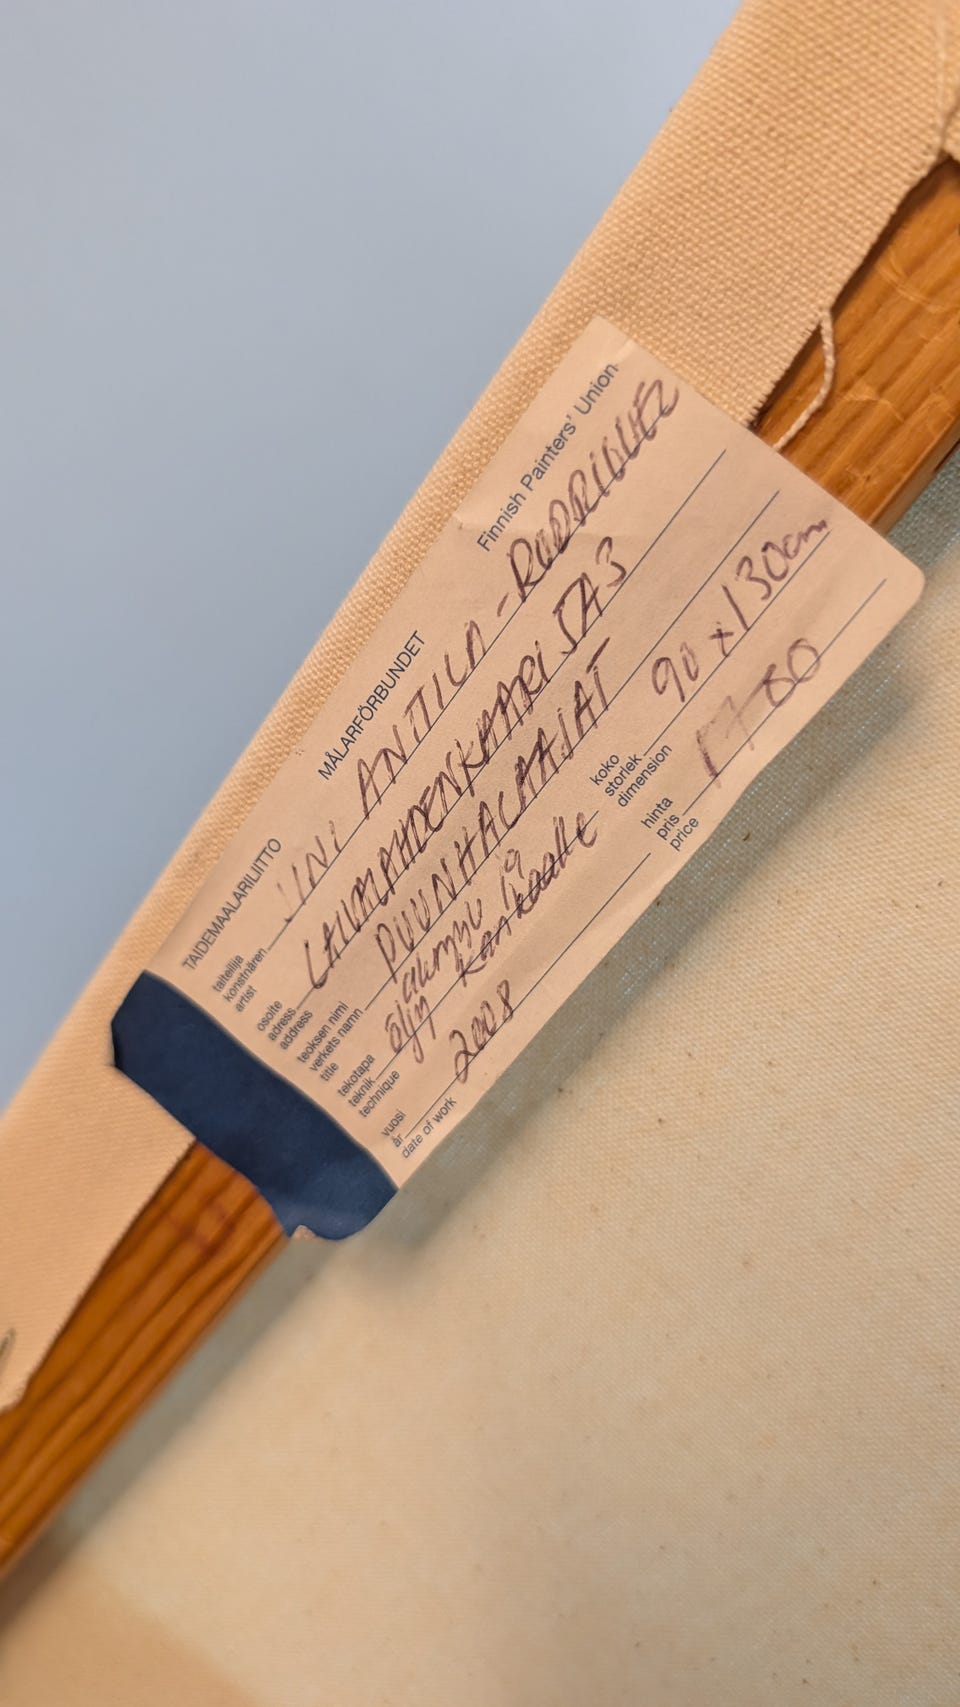 TAIDEMAALARILIITTO MÅLARFÖRBUNDET Finnish Painters' Union
taiteilija
konstnären
artist
JINI ANTTILA-RODRIGUEZ
osoite
adress
address
5A3
teoksen nimi
verkets namn
title
PUUNHALAAJAT
tekotapa
teknik
technique
akryyli ja
öljy kankaalle
koko
storlek
dimension
90 x 130cm
vuosi
år
date of work
2008
hinta
pris
price
1700